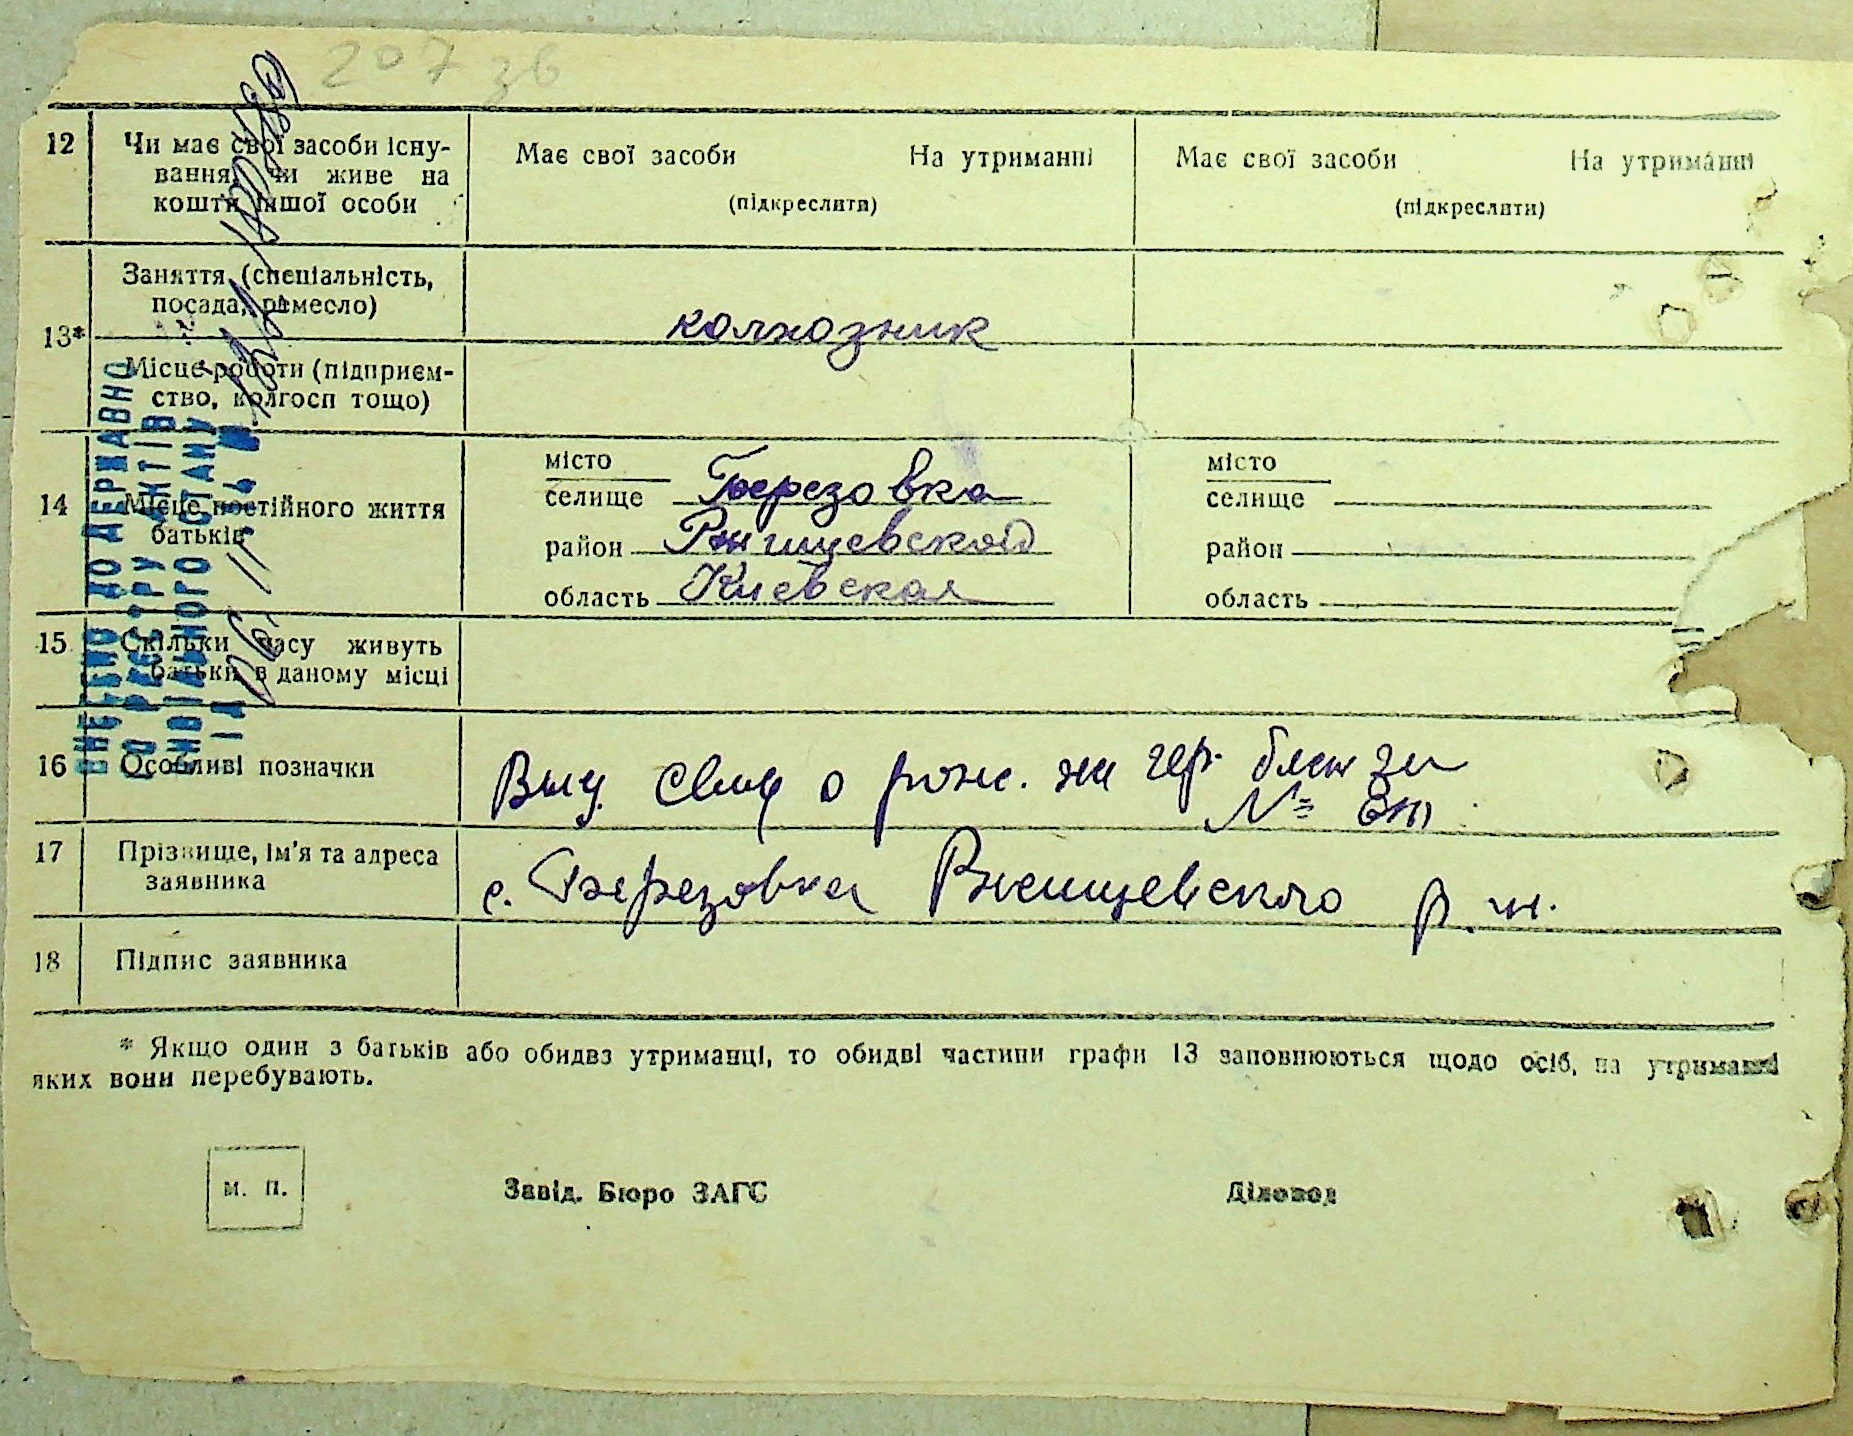 207 зв
12 Чи має свої засоби існу-
вання, чи живе на
кошти іншої особи
Має свої засоби На утриманні
(підкреслити)
Має свої засоби На утриманні
(підкреслити)
13* Заняття (спеціальність,
посада, ремесло)
колхозник
Місце роботи (підприєм-
ство, колгосп тощо)
14 Місце постійного життя
батьків
місто
селище Березовка
район Ржищевской
область Киевская
місто
селище
район
область
15 Скільки часу живуть
батьки в даному місці
16 Особливі позначки
Выд. свид о рожс. на гер. бланзи
№
17 Прізвище, ім'я та адреса
заявника
с. Березовка Ржищевского р. н.
18 Підпис заявника
* Якщо один з батьків або обидвз утриманці, то обидві частини графи 13 заповнюються щодо осіб, на утриманні
яких вони перебувають.
м. п.
Завід. Бюро ЗАГС
Діловод
ВНЕСЕНО ДО ДЕРЖАВНО
ГО РЕЄСТРУ АКТІВ
ЦИВІЛЬНОГО СТАНУ
ЗА №